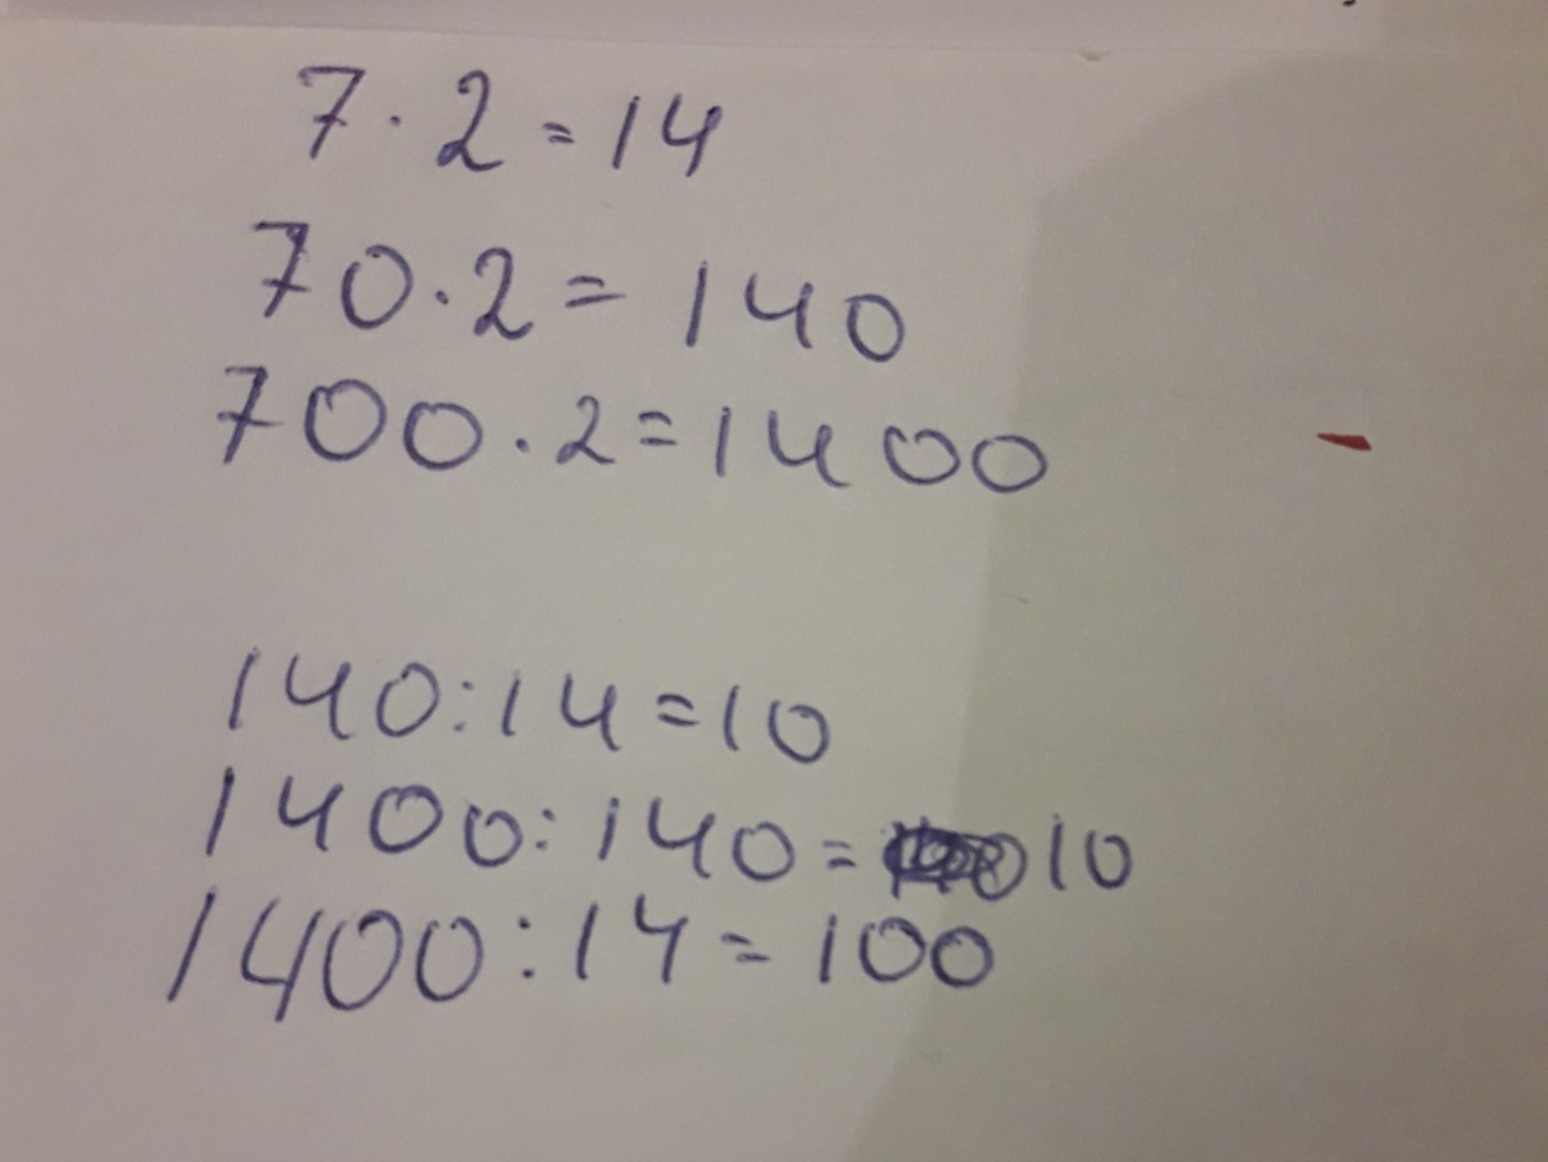 7 · 2 = 14
70 · 2 = 140
700 · 2 = 1400
140 : 14 = 10
1400 : 140 = 10
1400 : 14 = 100